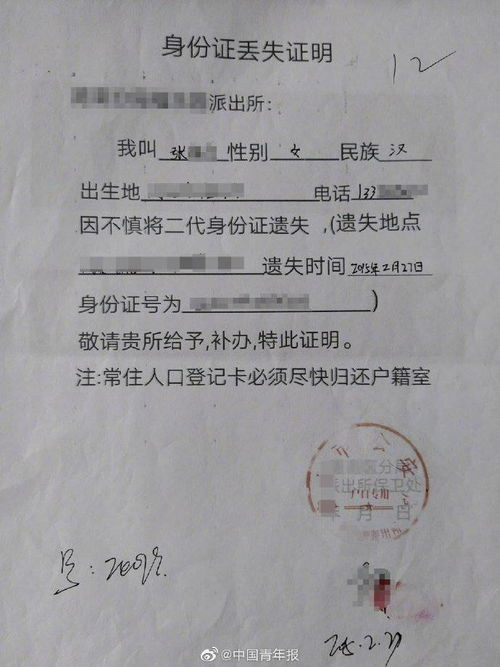 身份证丢失证明
12
派出所：
我叫 张 性别 女 民族 汉
出生地 电话 133
因不慎将二代身份证遗失，(遗失地点
遗失时间 2015年2月27日
身份证号为 )
敬请贵所给予,补办,特此证明。
注:常住人口登记卡必须尽快归还户籍室
公
分局
派出所保卫处
户口专用
年 月 日
@中国青年报